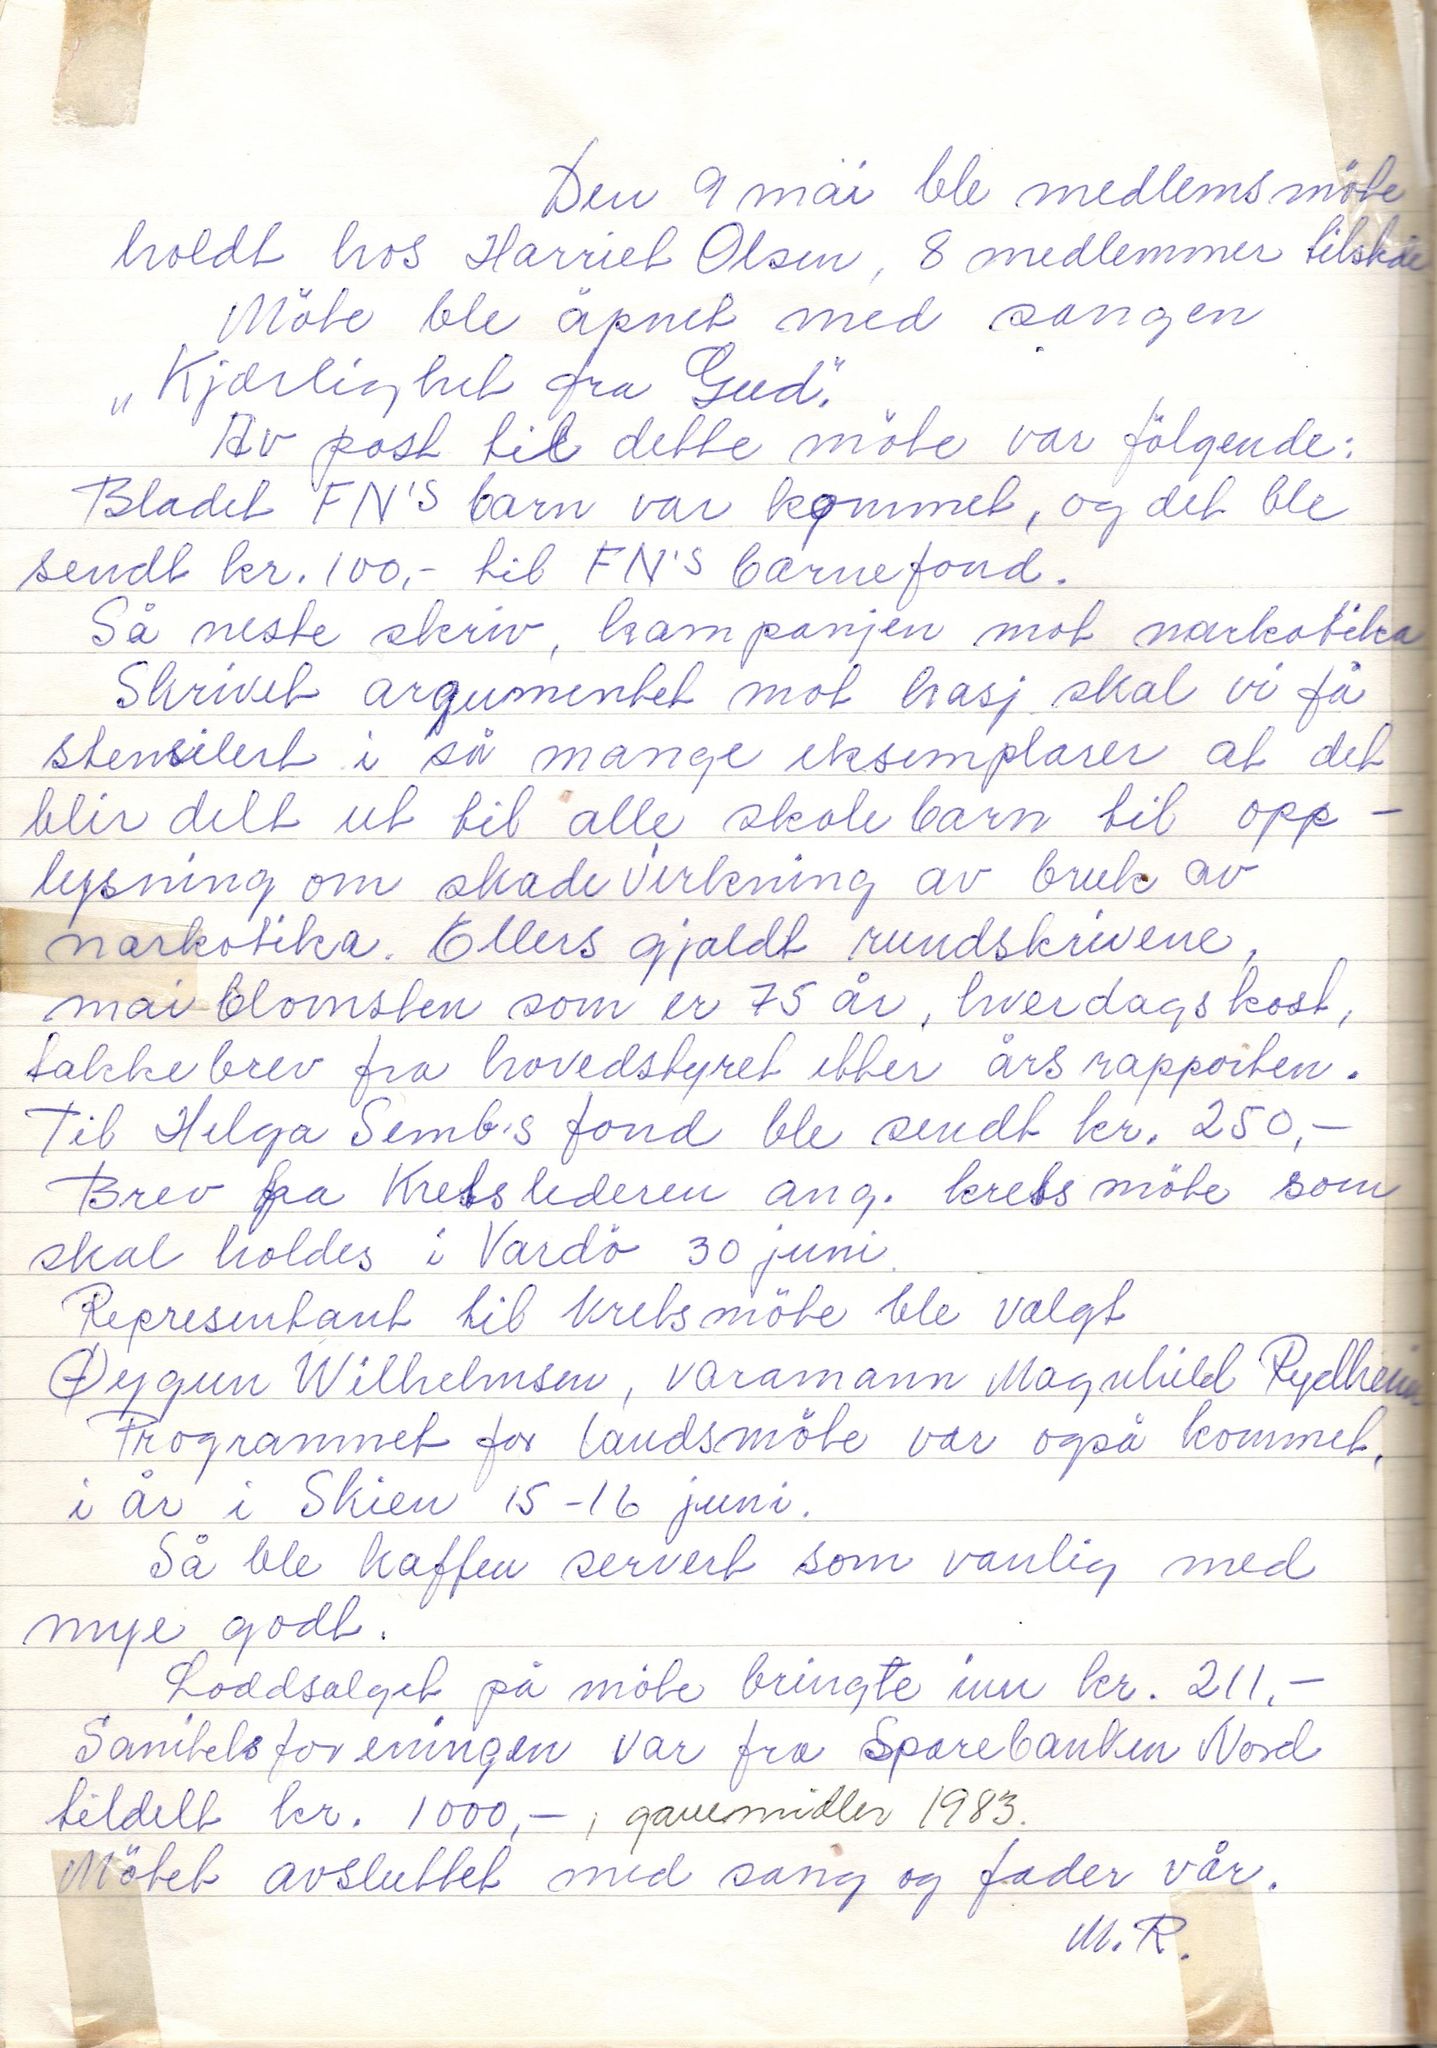 Den 9 mai ble medlemsmöte
holdt hos Harriet Olsen, 8 medlemmer
Möte ble åpnet med sangen
„Kjærlighet fra Gud".
Av post til dette möte var fölgende:
Bladet FN'S barn var kommet, og det ble
sendt kr. 100,- til FN'S barnefond.
Så neste skriv, kampanjen mot narkotika
Skrivet argumentet mot hasj skal vi få
stensilert i så mange eksemplarer at det
blir delt ut til alle skolebarn til opp-
lysning om skadevirkning av bruk av
narkotika. Ellers gjaldt rundskrivene,
mai blomsten som er 75 år, hverdagskost,
takkebrev fra hovedstyret etter årsrapporten.
Til Helga Semb's fond ble sendt kr. 250,-
Brev fra Kretslederen ang. kretsmöte som
skal holdes i Vardö 30 juni.
Representant til kretsmöte ble valgt
Øygun Wilhelmsen, varamann Magnhild Rydheim
Programmet for landsmöte var også kommet,
i år i Skien 15-16 juni.
Så ble kaffen servert som vanlig med
mye godt.
Loddsalget på möte bringte inn kr. 211,-
Sanitetsforeningen var fra Sparebanken Nord
tildelt kr. 1000,- i gavemidler 1983.
Mötet avsluttet med sang og fader vår.
M.R.